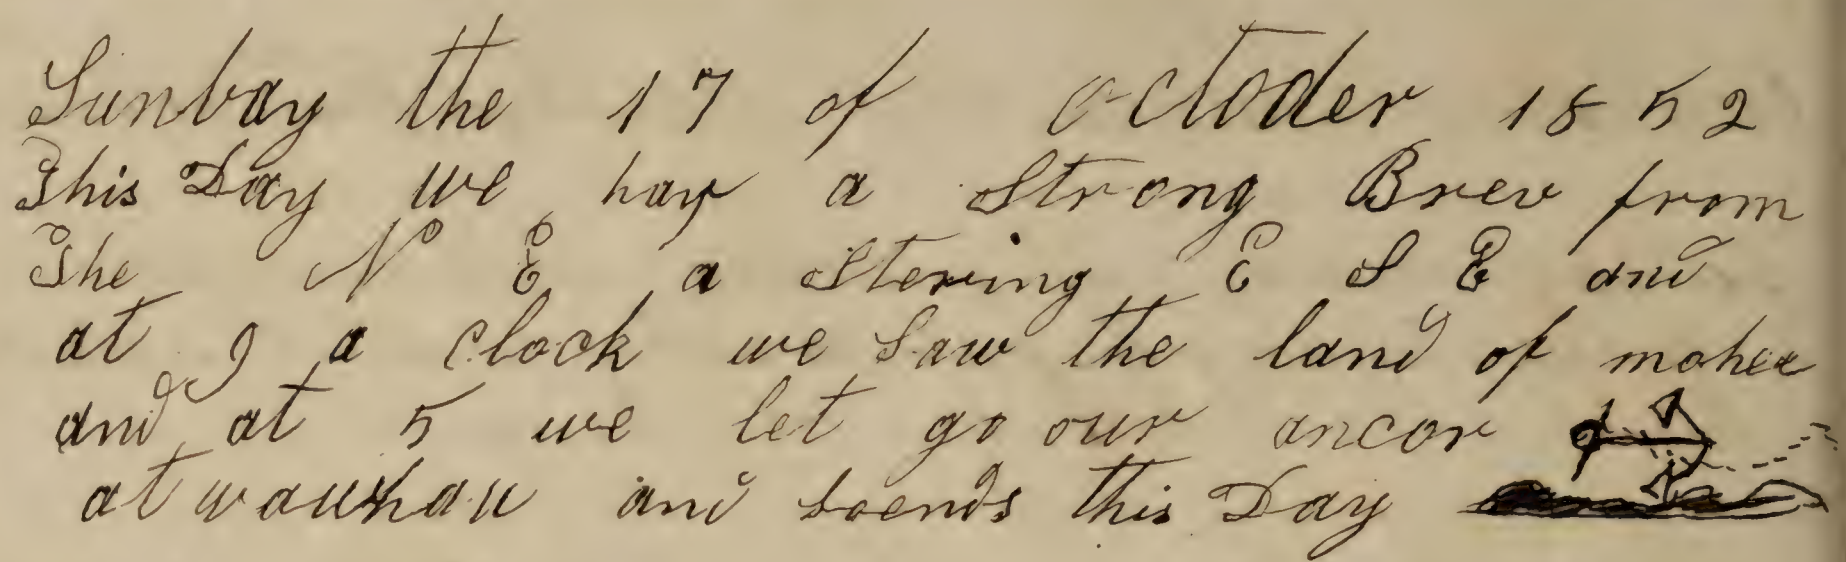 Sunbay the 17 of octoder 1852
This Day we hav a Strong Brev from
The N E a Stering E S E and
at 9 a clock we Saw the land of mohee
and at 5 we let go our ancor
at wauhau and soends this Day